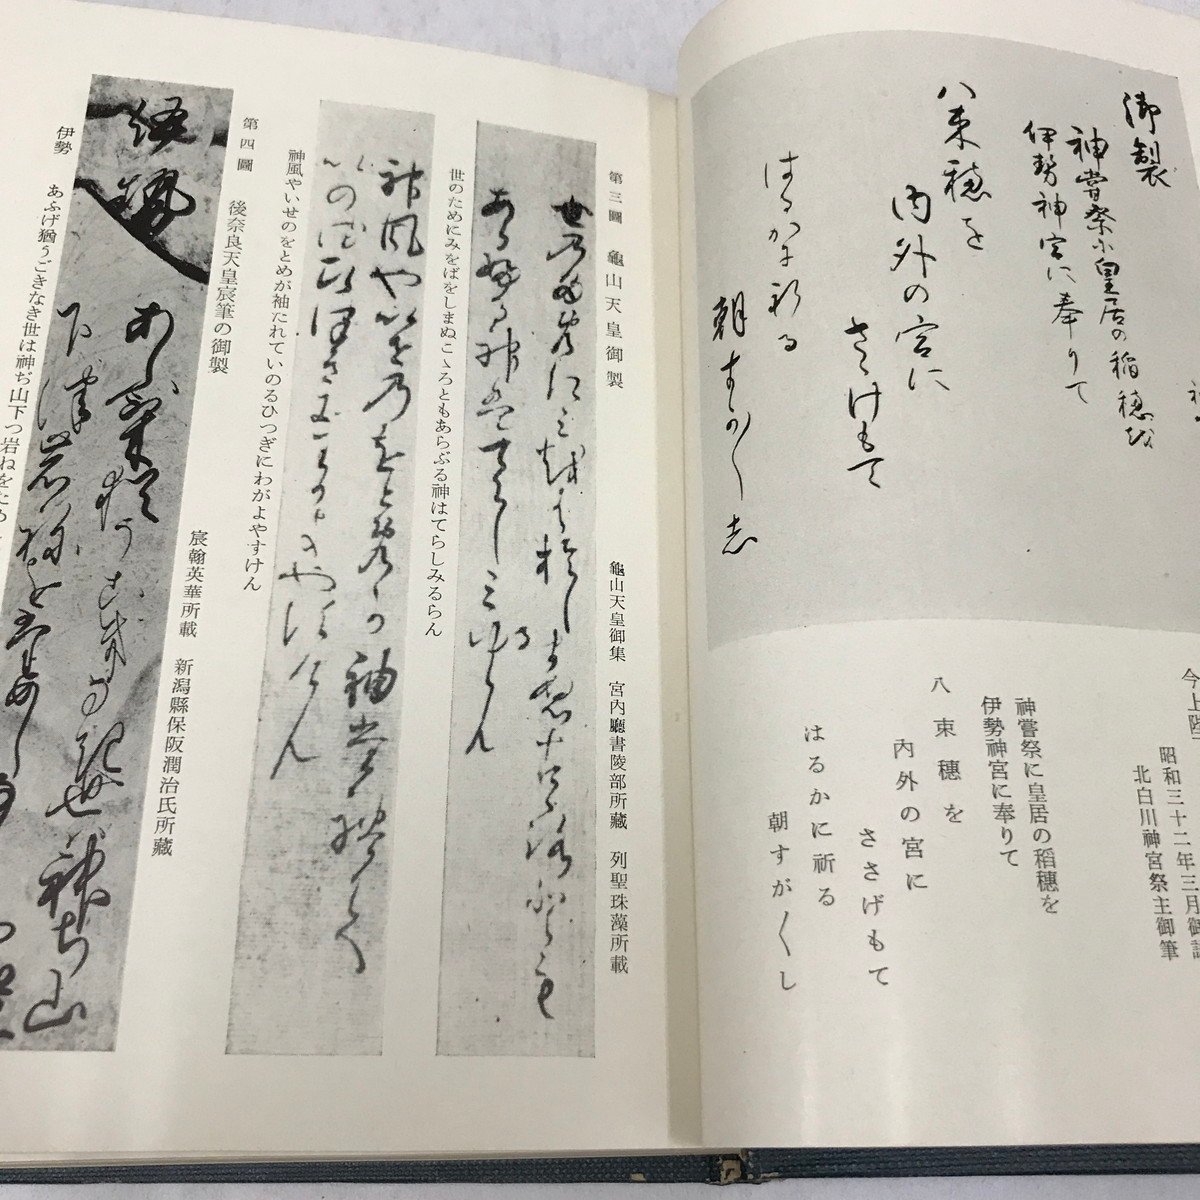 御製
神嘗祭に皇居の稲穂を
伊勢神宮に奉りて
八束穂を
内外の宮に
さゝけもて
はるかに祈る
朝すか〳〵し
今上陛
昭和三十二年三月御詠
北白川神宮祭主御筆
神嘗祭に皇居の稻穗を
伊勢神宮に奉りて
八束穗を
內外の宮に
ささげもて
はるかに祈る
朝すが〳〵し
第三圖 龜山天皇御製 龜山天皇御集 宮內廳書陵部所藏 列聖珠藻所載
世のためにみをばをしまぬこゝろともあらぶる神はてらしみるらん
神風やいせのをとめが袖たれていのるひつぎにわがよやすけん
第四圖 後奈良天皇宸筆の御製 宸翰英華所載 新潟縣保阪潤治氏所藏
伊勢 あふげ猶うごきなき世は神ぢ山下つ岩ねをた